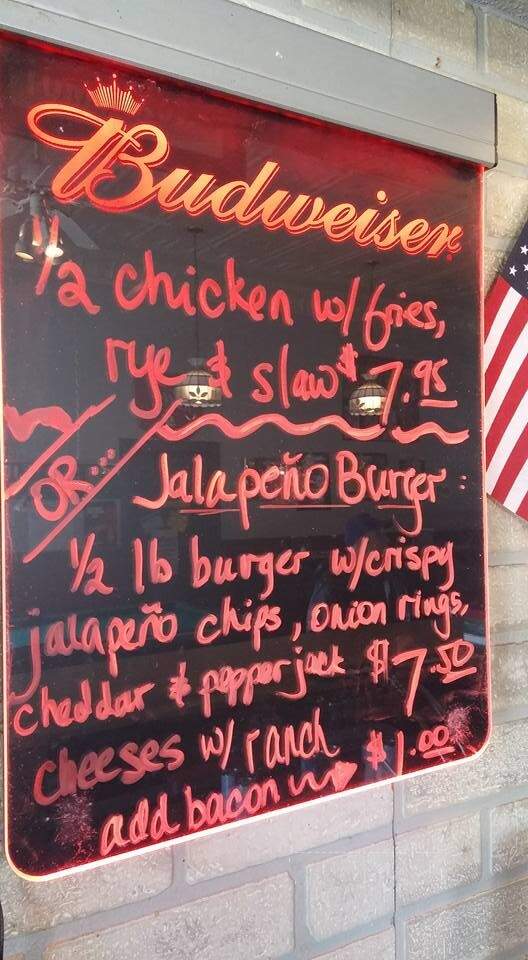 Budweiser
1/2 chicken w/ fries,
rye & slaw $7.95
OR...
Jalapeño Burger:
1/2 lb burger w/crispy
jalapeño chips, onion rings,
cheddar & pepper jack $7.50
cheeses w/ ranch
add bacon $1.00